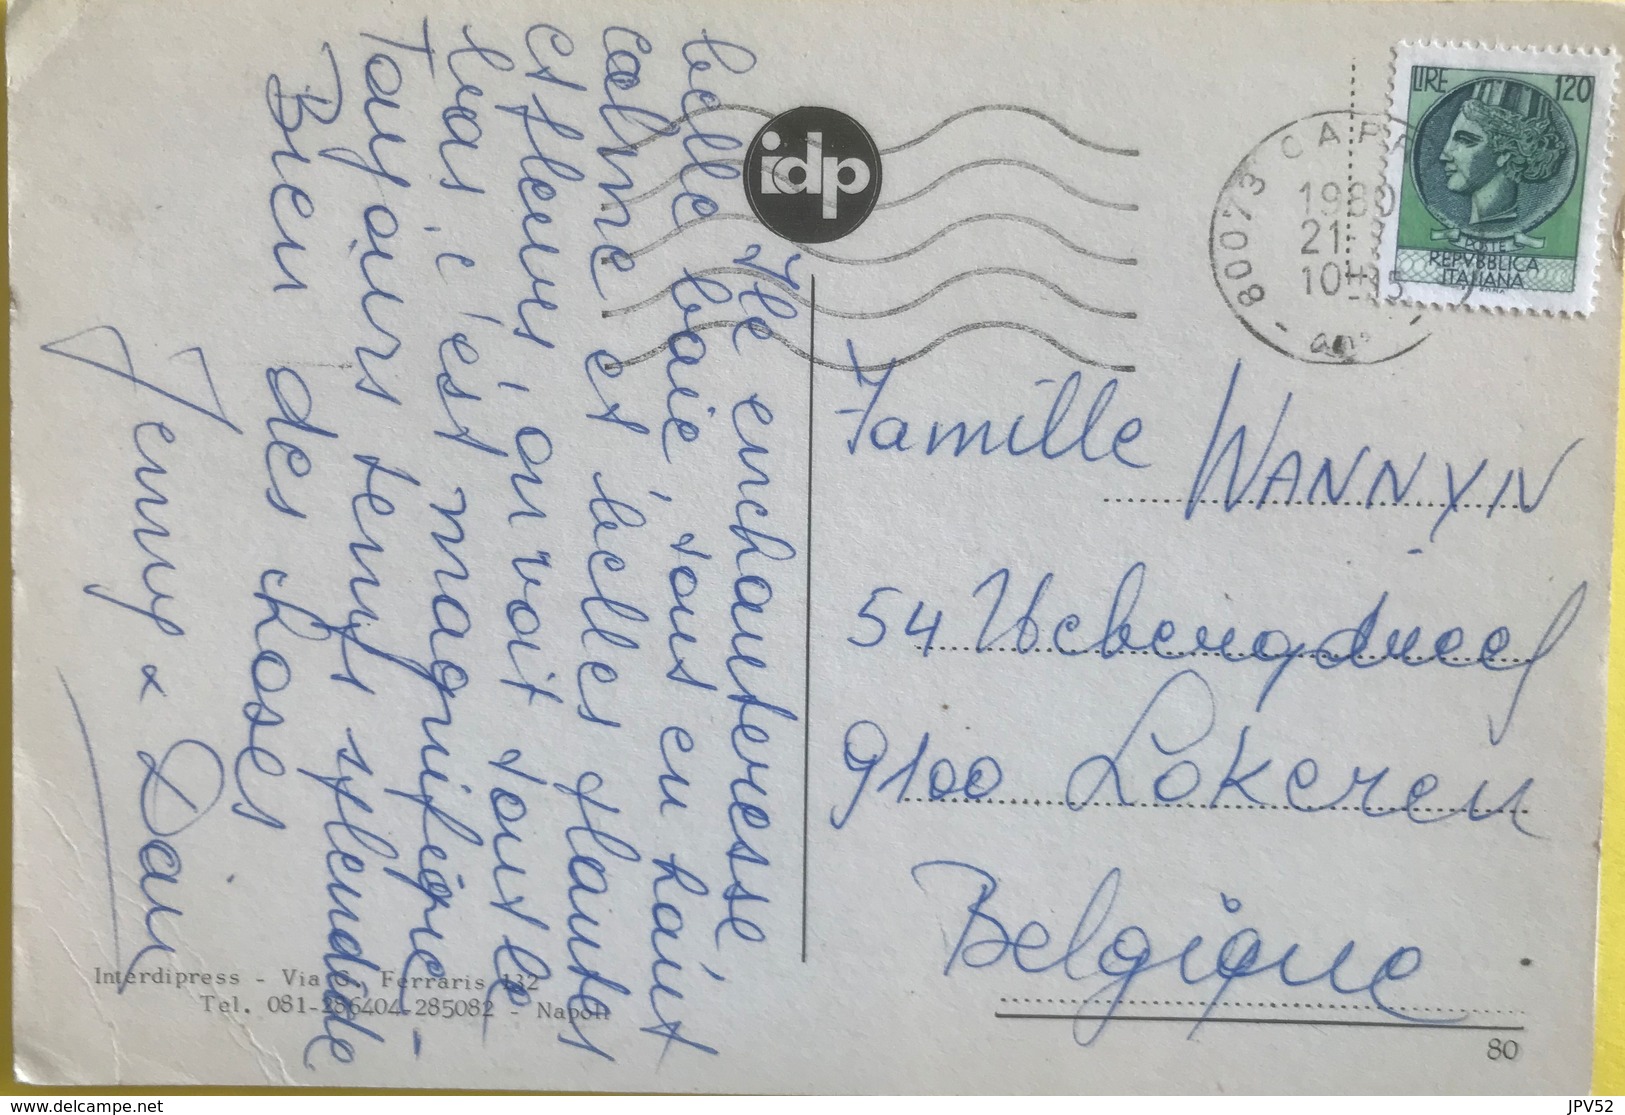 Ile enchanteresse
belle baie, tout en haut
calme et belles plantes
et fleurs, on voit tout le
bas, c'est magnifique -
Toujours temps splendide
Bien des choses
Jenny &
idp
LIRE 120
POSTE
REPVBBLICA
ITALIANA
80073 CAPRI
1980
21-
10
Famille WANNYN
54
9100 Lokeren
Belgique
Interdipress - Via G. Ferraris 132
Tel. 081-286404-285082 - Napoli
80
www.delcampe.net
JPV52